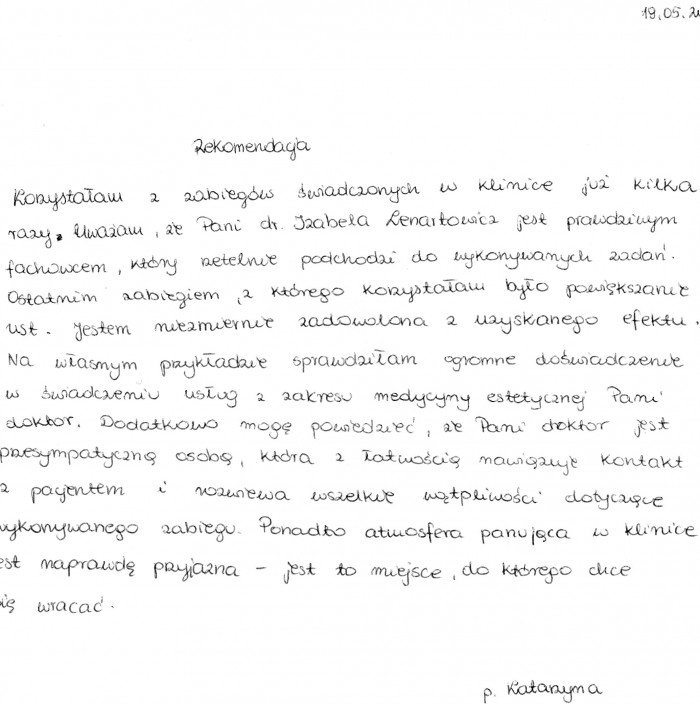 19.05.2
Rekomendacja
Korzystałam z zabiegów świadczonych w klinice już kilka
razy. Uważam, że Pani dr. Izabela Lenartowicz jest prawdziwym
fachowcem, który rzetelnie podchodzi do wykonywanych zadań.
Ostatnim zabiegiem, z którego korzystałam było powiększanie
ust. Jestem niezmiernie zadowolona z uzyskanego efektu.
Na własnym przykładzie sprawdziłam ogromne doświadczenie
w świadczeniu usług z zakresu medycyny estetycznej Pani
doktor. Dodatkowo mogę powiedzieć, że Pani doktor jest
przesympatyczną osobą, która z łatwością nawiązuje kontakt
z pacjentem i rozwiewa wszelkie wątpliwości dotyczące
wykonywanego zabiegu. Ponadto atmosfera panująca w klinice
est naprawdę przyjazna – jest to miejsce, do którego chce
się wracać.
p. Katarzyna